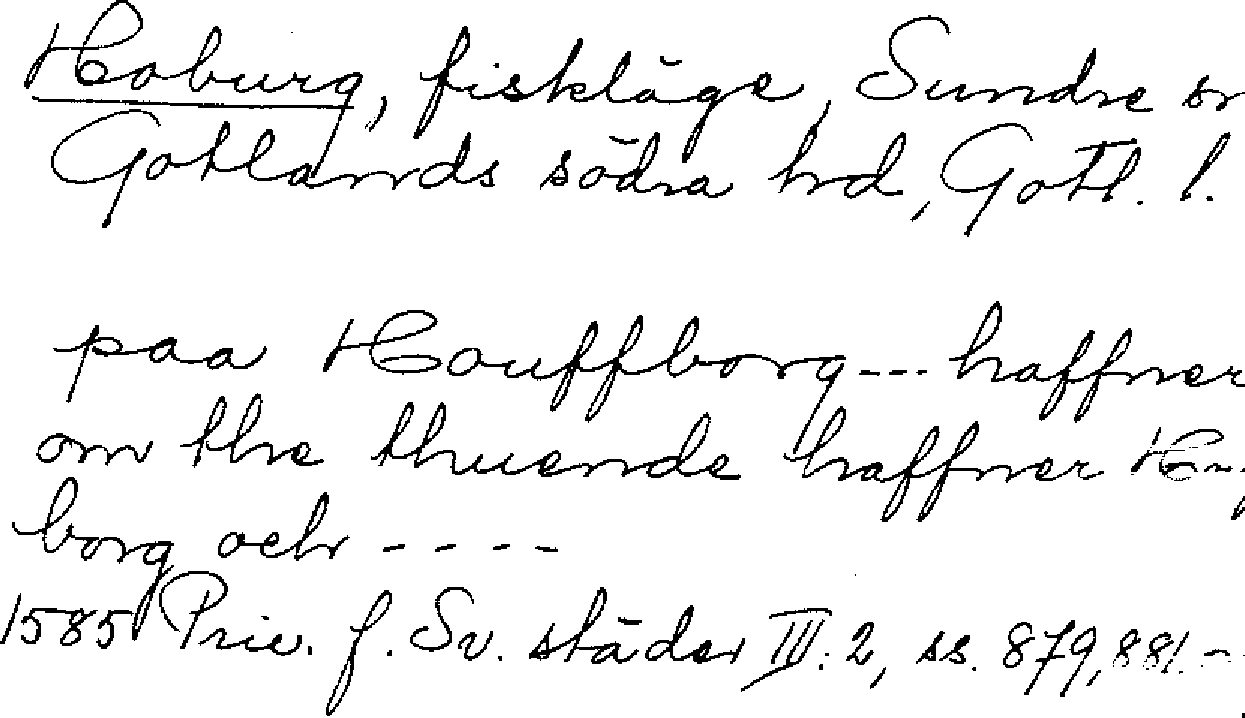 Hoburg, fiskläge, Sundre sn
Gotlands södra hrd, Gotl. l.
paa Houffborg --- haffner
om the thuende haffner
borg och ----
1585 Priv. f. Sv. städer III: 2, ss. 879, 881. -